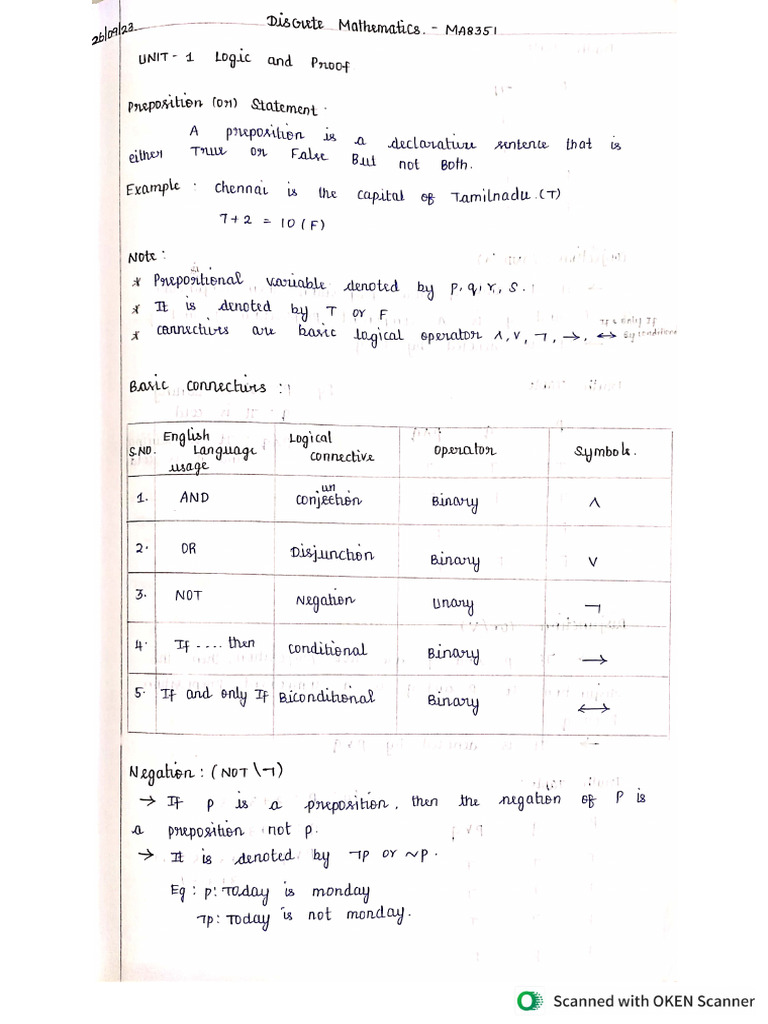 26/09/23
Discrete Mathematics. - MA8351
UNIT - 1 Logic and Proof
Preposition (or) Statement.
A preposition is a declarative sentence that is
either True or False But not Both.
Example : Chennai is the capital of Tamilnadu. (T)
7+2 = 10 (F)
Note :
* Prepositional variable denoted by p, q, r, s.
* It is denoted by T or F
* connectives are basic logical operator ∧, ∨, ¬, →, ↔ If & only If
By conditional
Basic connectives :
S.NO. English Language usage Logical connective Operator Symbols.
1. AND Conjection un Binary ∧
2. OR Disjunction Binary ∨
3. NOT Negation Unary ¬
4. If .... then Conditional Binary →
5. If and only If Biconditional Binary ↔
Negation : (NOT \ ¬)
→ If p is a preposition, then the negation of P is
a preposition not p.
→ It is denoted by ¬p or ~p.
Eg : p: Today is monday
¬p: Today is not monday.
Scanned with OKEN Scanner